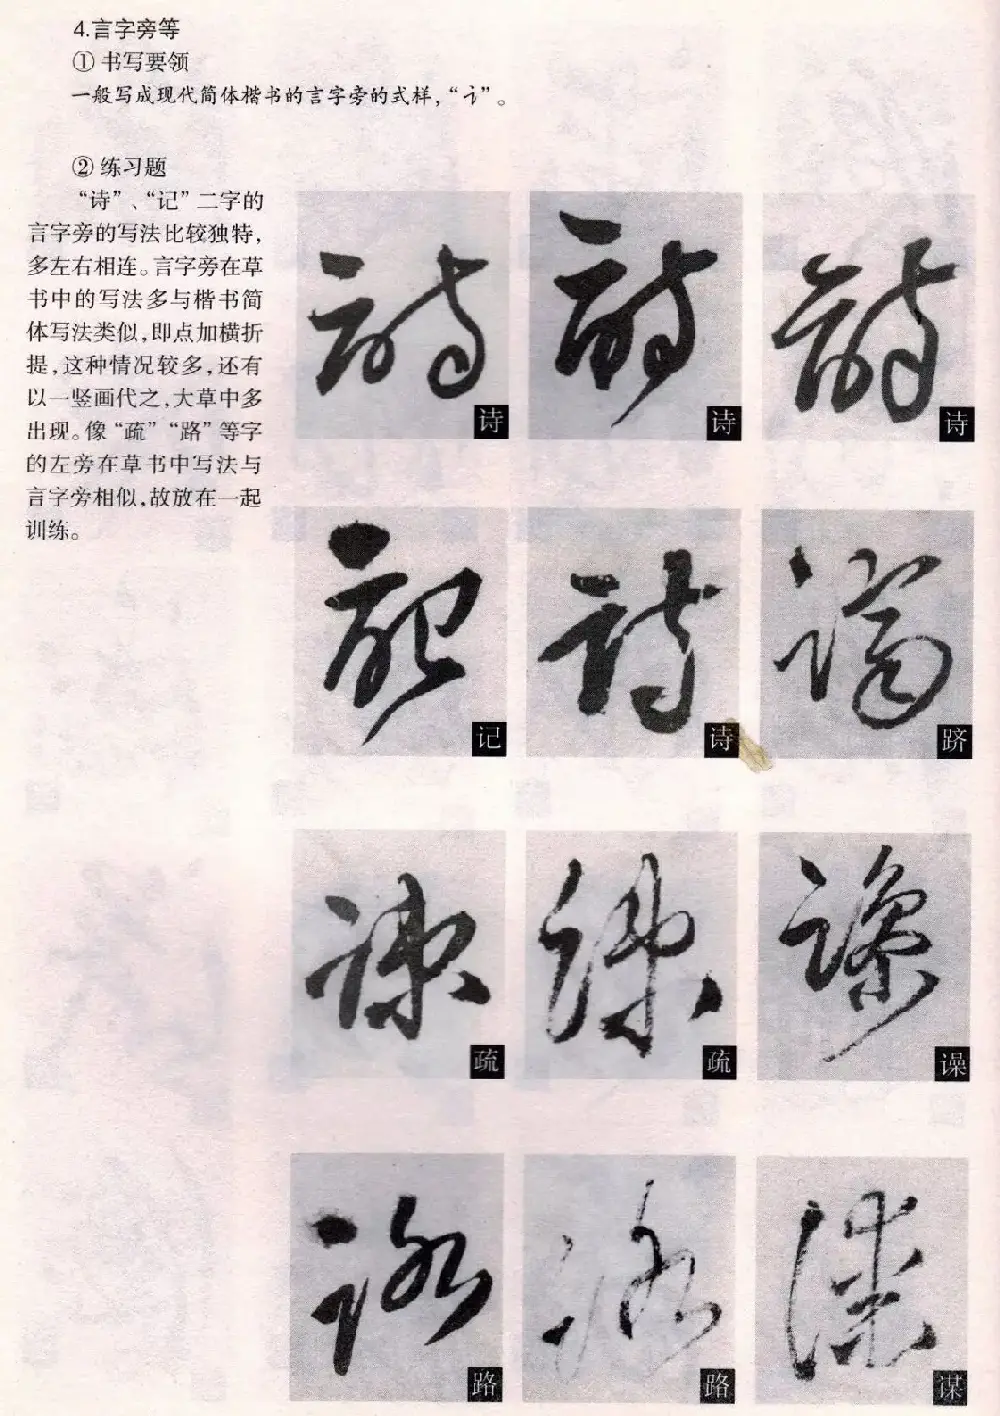 4.言字旁等
① 书写要领
一般写成现代简体楷书的言字旁的式样，“讠”。
② 练习题
“诗”、“记”二字的
言字旁的写法比较独特，
多左右相连。言字旁在草
书中的写法多与楷书简
体写法类似，即点加横折
提，这种情况较多，还有
以一竖画代之，大草中多
出现。像“疏”“路”等字
的左旁在草书中写法与
言字旁相似，故放在一起
训练。
诗 诗 诗
记 诗 跻
疏 疏 谋
路 路 谋